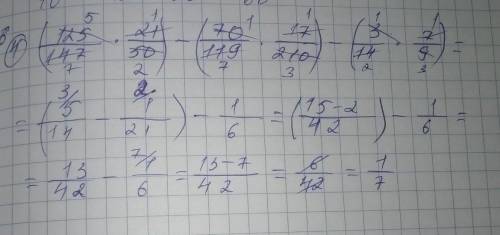 4) (125/147 · 21/50) − (70/119 · 17/210) − (3/14 · 7/9) =
= (5/14 − 1/21) − 1/6 = (15−2/42) − 1/6 =
= 13/42 − 1/6 = 13−7/42 = 6/42 = 1/7